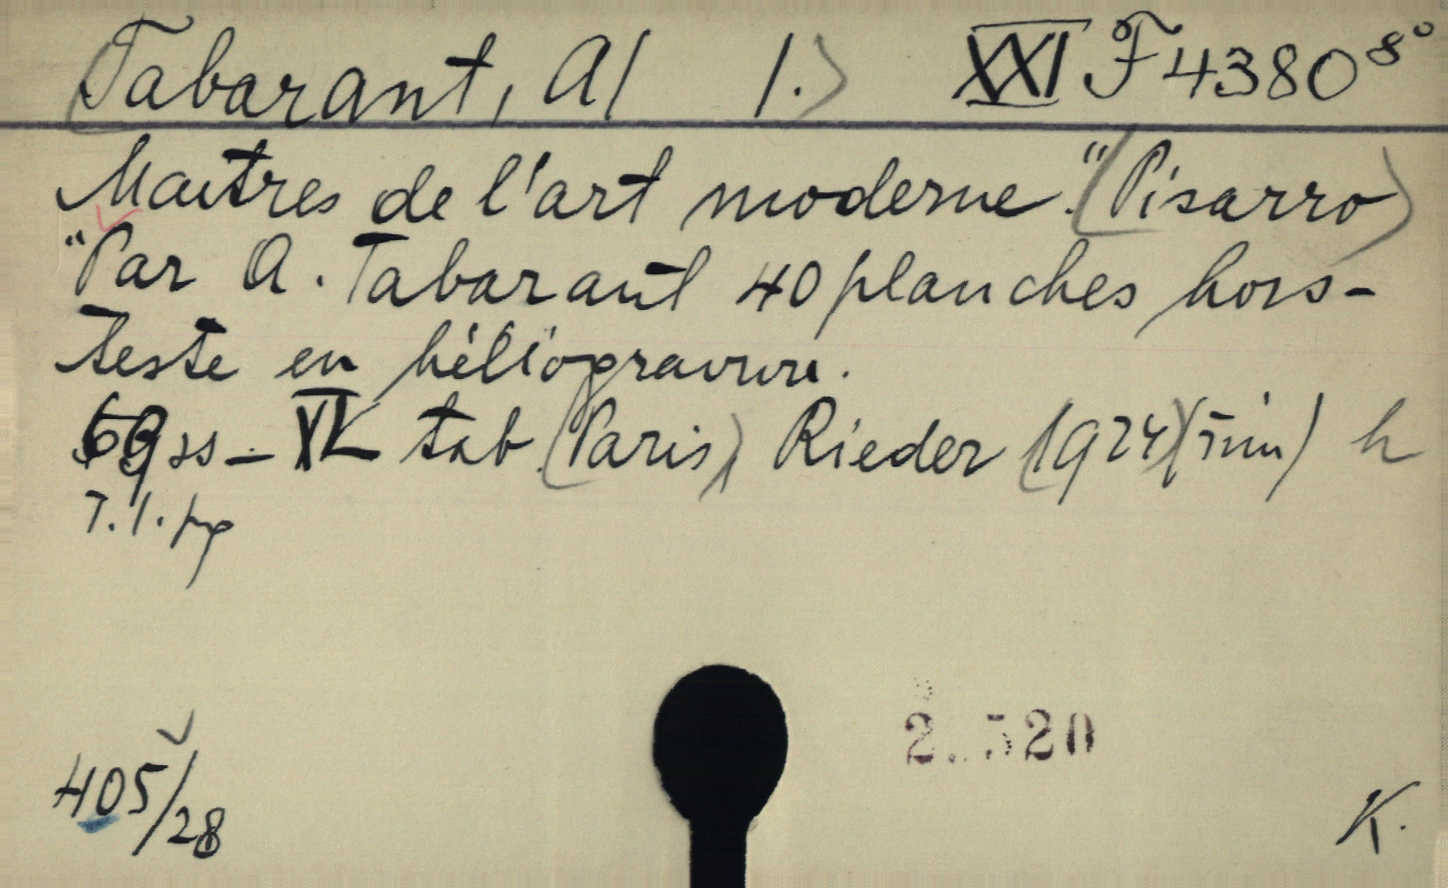 (Tabarant, A/ /.) XXI F 4380 8°
Maitres de l'art moderne." (Pisarro)
"Par A. Tabarant 40 planches hors-
teste en héliogravure.
69 ss - XL tab (Paris) Rieder (1924)
T.1.
2. 520
405/28
K.